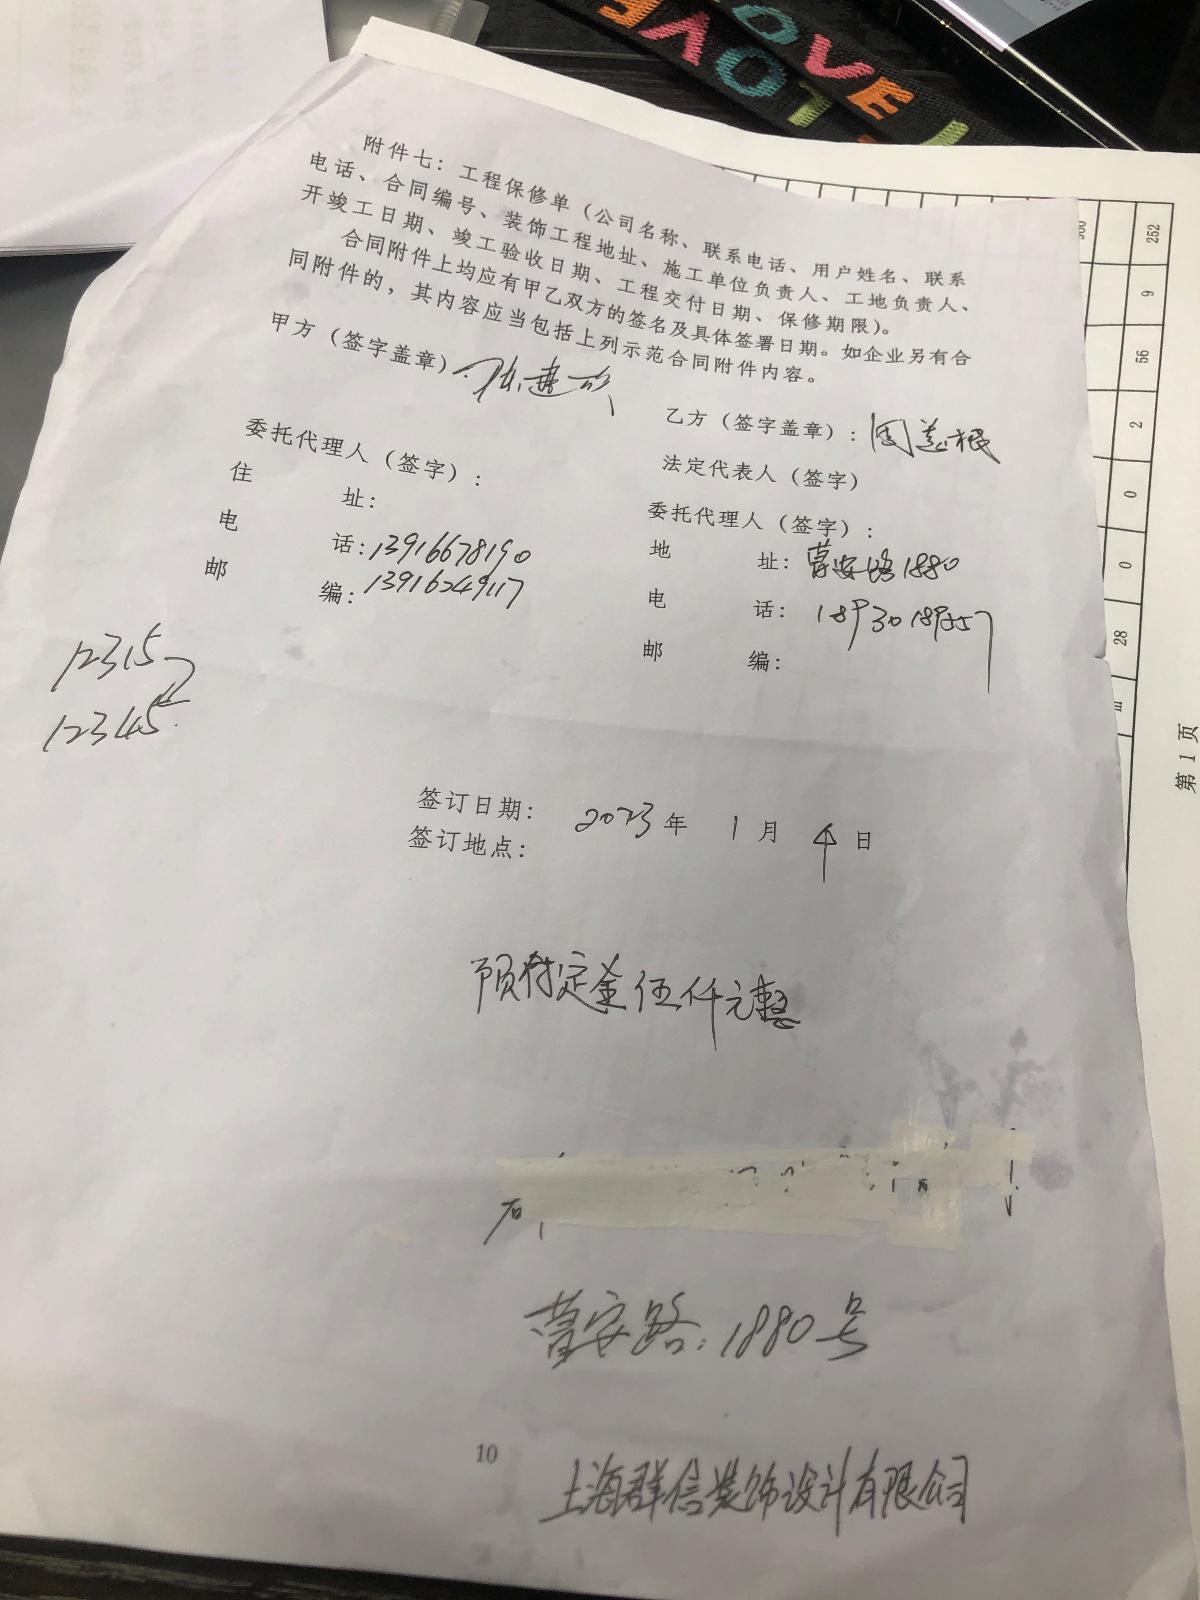 附件七：工程保修单（公司名称、联系电话、用户姓名、联系
电话、合同编号、装饰工程地址、施工单位负责人、工地负责人、
开竣工日期、竣工验收日期、工程交付日期、保修期限）。
合同附件上均应有甲乙双方的签名及具体签署日期。如企业另有合
同附件的，其内容应当包括上列示范合同附件内容。
甲方（签字盖章）
乙方（签字盖章）：周
法定代表人（签字）
委托代理人（签字）：
委托代理人（签字）：
住 址：
地 址：曹安路1880
电 话：13916678190
电 话：18930189557
邮 编：13916249117
邮 编：
12315
12345
签订日期： 2023年 1月 4日
签订地点：
预付定金伍仟元整
曹安路：1880号
10
上海群信装饰设计有限公司
252
9
56
2
0
0
28
第 1 页
LOVE
LOVE